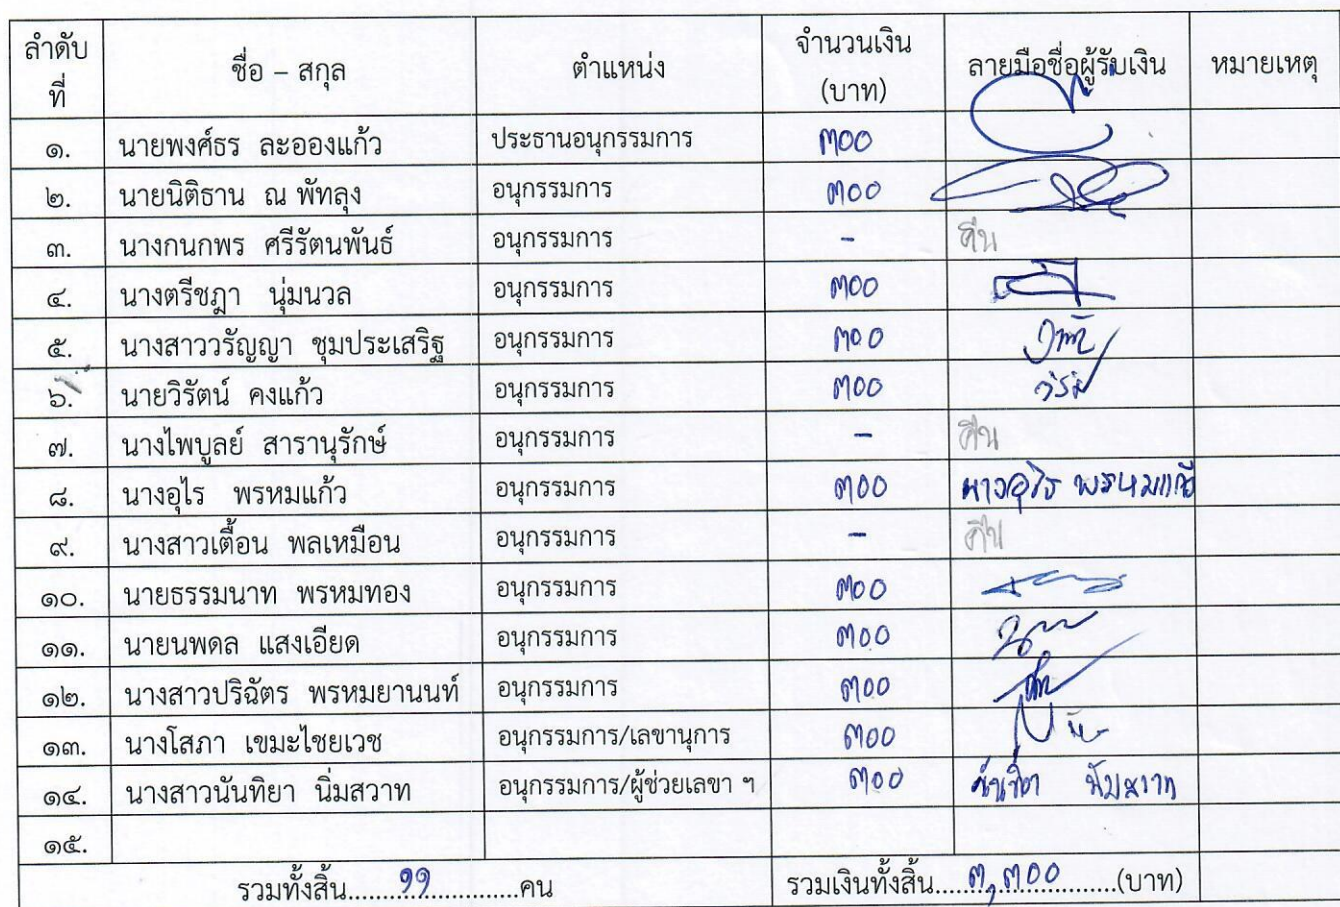 ลำดับที่ ชื่อ – สกุล ตำแหน่ง จำนวนเงิน (บาท) ลายมือชื่อผู้รับเงิน หมายเหตุ
๑. นายพงศ์ธร ละอองแก้ว ประธานอนุกรรมการ ๓๐๐
๒. นายนิติธาน ณ พัทลุง อนุกรรมการ ๓๐๐
๓. นางกนกพร ศรีรัตนพันธ์ อนุกรรมการ - คืน
๔. นางตรีชฎา นุ่มนวล อนุกรรมการ ๓๐๐
๕. นางสาววรัญญา ชุมประเสริฐ อนุกรรมการ ๓๐๐
๖. นายวิรัตน์ คงแก้ว อนุกรรมการ ๓๐๐
๗. นางไพบูลย์ สารานุรักษ์ อนุกรรมการ - คืน
๘. นางอุไร พรหมแก้ว อนุกรรมการ ๓๐๐ นางอุไร พรหมแก้ว
๙. นางสาวเตื้อน พลเหมือน อนุกรรมการ - คืน
๑๐. นายธรรมนาท พรหมทอง อนุกรรมการ ๓๐๐
๑๑. นายนพดล แสงเอียด อนุกรรมการ ๓๐๐
๑๒. นางสาวปริฉัตร พรหมยานนท์ อนุกรรมการ ๓๐๐
๑๓. นางโสภา เขมะไชยเวช อนุกรรมการ/เลขานุการ ๓๐๐
๑๔. นางสาวนันทิยา นิ่มสวาท อนุกรรมการ/ผู้ช่วยเลขา ฯ ๓๐๐ นันทิยา นิ่มสวาท
๑๕.
รวมทั้งสิ้น....๑๑....คน รวมเงินทั้งสิ้น....๓,๓๐๐....(บาท)